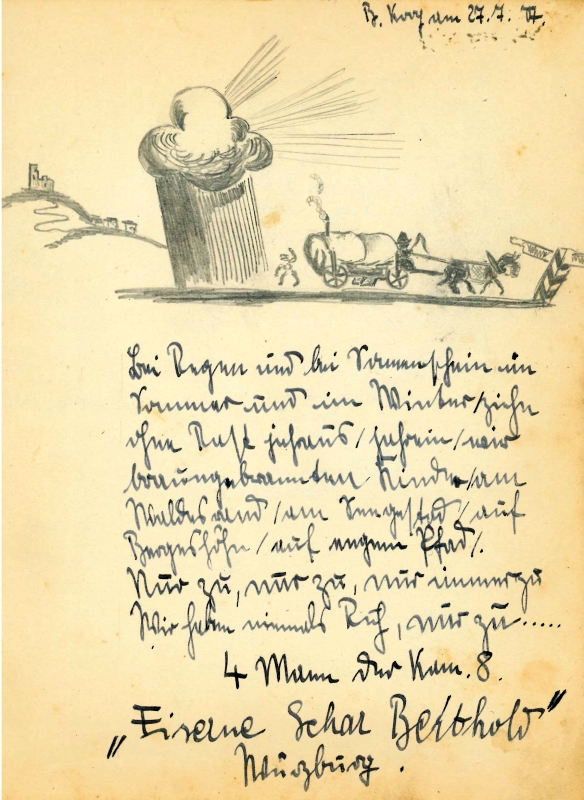 B. Koog am 27.7.
Bei Regen und bei Sonnenschein im
Sommer und im Winter / ziehn
ohne Rast jahraus / jahrein / wir
braungebrannten Kinder / am
Waldesrand / am Seegestad / auf
Bergeshöhn / auf engem Pfad /.
Nur zu, nur zu, nur immerzu
Wir haben niemals Ruh, nur zu.....
4 Mann der Kam. 8.
„Eiserne Schar Berthold"
Würzburg.